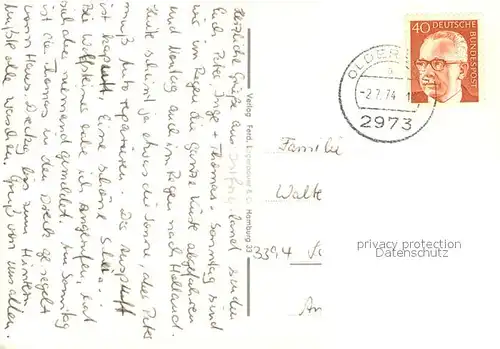 Herzliche Grüße aus Ostfriesland senden
Euch Peter, Inge + Thomas. Sonntag sind
wir im Regen die ganze Küste abgefahren
und Montag auch im Regen nach Holland.
Heute scheint ja etwas die Sonne aber Peter
muß Auto reparieren. Der Auspuff
ist kaputt, eine schöne
Bei Wolfsteiners habe ich angerufen, hat
sich aber niemand gemeldet. Am Sonntag
ist der Thomas in den Dreck gesegelt
vom Haus, Dreckig bis zum Hintern.
Mußte alle waschen. Gruß von uns allen.
Verlag Ferd. Lagerbauer & Co Hamburg 33
40 DEUTSCHE BUNDESPOST
-2.7.74
2973
Familie
Walte
3394
privacy protection
Datenschutz